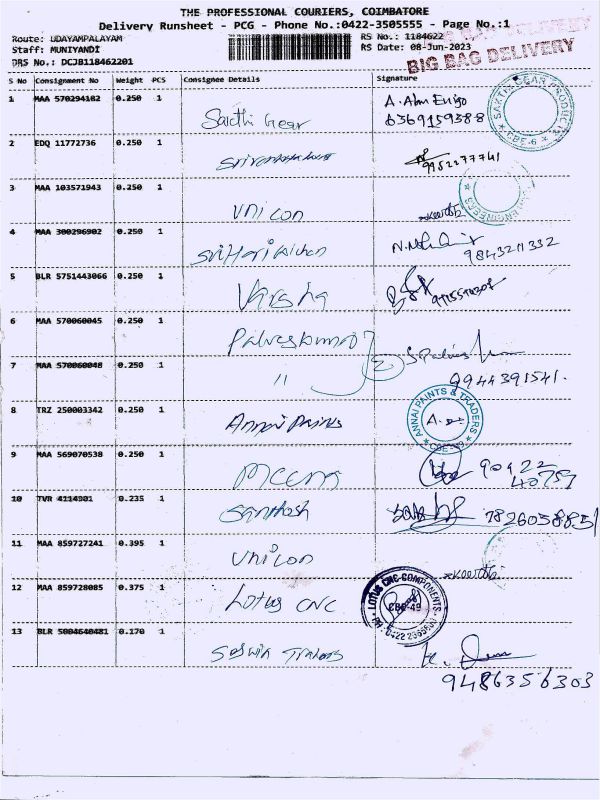 THE PROFESSIONAL COURIERS, COIMBATORE
Delivery Runsheet - PCG - Phone No.:0422-3505555 - Page No.:1
Route: UDAYAMPALAYAM
RS No.: 1184622
Staff: MUNIYANDI
RS Date: 08-Jun-2023
DRS No.: DCJB118462201
BIG BAG DELIVERY
BIG BAG DELIVERY
S No Consignment No Weight PCS Consignee Details Signature
1 MAA 570294182 0.250 1 Sakthi Gear
6369159388
SAKTHI GEAR PRODUCTS
2 EDQ 11772736 0.250 1
9952277741
3 MAA 103571943 0.250 1 Unicon
ENGINEERS
4 MAA 300296902 0.250 1 Sri Hari Kitchen
9843211332
5 BLR 5751443066 0.250 1 Varsha
6 MAA 570060045 0.250 1
7 MAA 570060048 0.250 1 "
2
9944391541.
8 TRZ 250003342 0.250 1 Annai Paints
ANNAI PAINTS & TRADERS
CBE-49
9 MAA 569070538 0.250 1
90422
40757
10 TVR 4114901 0.235 1 Santhosh
7826058851
11 MAA 859727241 0.395 1 Unicon
12 MAA 859728085 0.375 1 Lotus CNC
LOTUS CNC COMPONENTS
CBE-49
PH: 0422 2365501
13 BLR 5004640481 0.170 1
9486356303